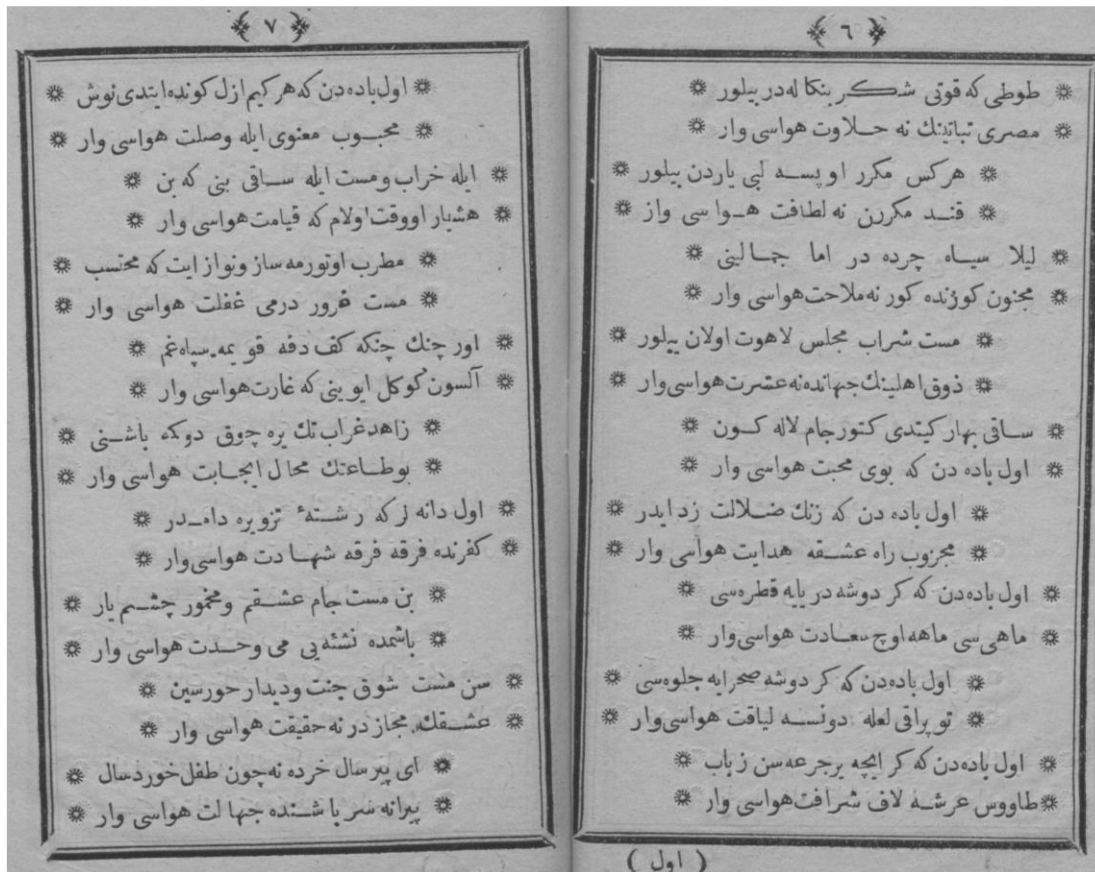 ﴿ ٦ ﴾
❋ طوطی که قوتی شکر بنکا له در بیلور ❋
❋ مصری نباتینك نه حلاوت هواسی وار ❋
❋ هرکس مکرر اوپسه لبی یاردن بیلور ❋
❋ قند مکررن نه لطافت هواسی واز ❋
❋ لیلا سیاه چرده در اما جمالینی ❋
❋ مجنون کوزنده کور نه ملاحت هواسی وار ❋
❋ مست شراب مجلس لاهوت اولان بیلور ❋
❋ ذوق اهلینك جهانده نه عشرت هواسی وار ❋
❋ ساقی بهار کیتدی کتور جام لاله کون ❋
❋ اول باده دن که بوی محبت هواسی وار ❋
❋ اول باده دن که زنك ضلالت زدایدر ❋
❋ مجزوب راه عشقه هدایت هواسی وار ❋
❋ اول باده دن که کر دوشه دریایه قطره سی ❋
❋ ماهی سی ماهه اوج سعادت هواسی وار ❋
❋ اول باده دن که کر دوشه صحرایه جلوه سی ❋
❋ توپراقی لعله دونسه لیاقت هواسی وار ❋
❋ اول باده دن که کر ایچه بر جرعه سن زباب ❋
❋ طاووس عرشه لاف شرافت هواسی وار ❋
( اول )
﴿ ٧ ﴾
❋ اول باده دن که هر کیم ازل کونده ایتدی نوش ❋
❋ محبوب معنوی ایله وصلت هواسی وار ❋
❋ ایله خراب و مست ایله ساقی بنی که بن ❋
❋ هشیار اووقت اولام که قیامت هواسی وار ❋
❋ مطرب اوتورمه ساز و نواز ایت که محتسب ❋
❋ مست غرور درمی غفلت هواسی وار ❋
❋ اور چنك چنکه کف دفه قو یمه سپاه غم ❋
❋ آلسون کوکل ایوینی که غارت هواسی وار ❋
❋ زاهد غراب تك یره چوق دوکه باشنی ❋
❋ بو طاعتك محال ایجابت هواسی وار ❋
❋ اول دانه لر که رشتهٔ تزویره دامدر ❋
❋ کفرنده فرقه فرقه شهادت هواسی وار ❋
❋ بن مست جام عشقم و مخمور چشم یار ❋
❋ باشمده نشئه یی می وحدت هواسی وار ❋
❋ سن مست شوق جنت و دیدار حورسین ❋
❋ عشقك مجاز در نه حقیقت هواسی وار ❋
❋ ای پیر سال خرده نه چون طفل خورد سال ❋
❋ پیرانه سر باشنده جهالت هواسی وار ❋